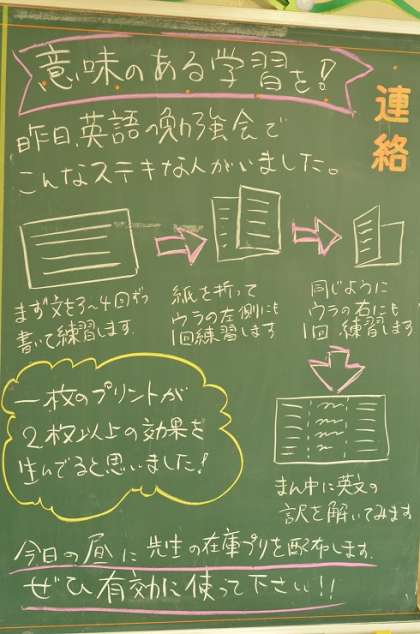 意味のある学習を!
連絡
昨日、英語の勉強会で
こんなステキな人がいました。
まず文を3〜4回ずつ
書いて練習します。
紙を折って
ウラの左側にも
1回練習します
同じように
ウラの右にも
1回練習します
一枚のプリントが
2枚以上の効果を
生んでると思いました!
まん中に英文の
訳を解いてみます
今日の昼に先生の在庫プリを配布します。
ぜひ有効に使って下さい!!